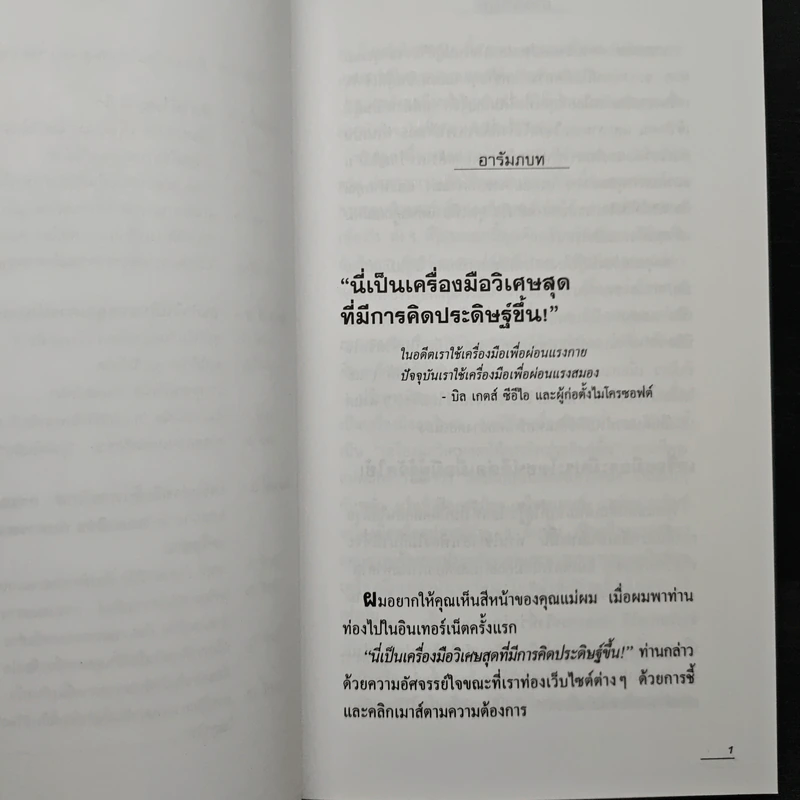 อารัมภบท
“นี่เป็นเครื่องมือวิเศษสุด
ที่มีการคิดประดิษฐ์ขึ้น!”
ในอดีตเราใช้เครื่องมือเพื่อผ่อนแรงกาย
ปัจจุบันเราใช้เครื่องมือเพื่อผ่อนแรงสมอง
- บิล เกตส์ ซีอีโอ และผู้ก่อตั้งไมโครซอฟต์
ผมอยากให้คุณเห็นสีหน้าของคุณแม่ผม เมื่อผมพาท่าน
ท่องไปในอินเทอร์เน็ตครั้งแรก
“นี่เป็นเครื่องมือวิเศษสุดที่มีการคิดประดิษฐ์ขึ้น!” ท่านกล่าว
ด้วยความอัศจรรย์ใจขณะที่เราท่องเว็บไซต์ต่างๆ ด้วยการชี้
และคลิกเมาส์ตามความต้องการ
1